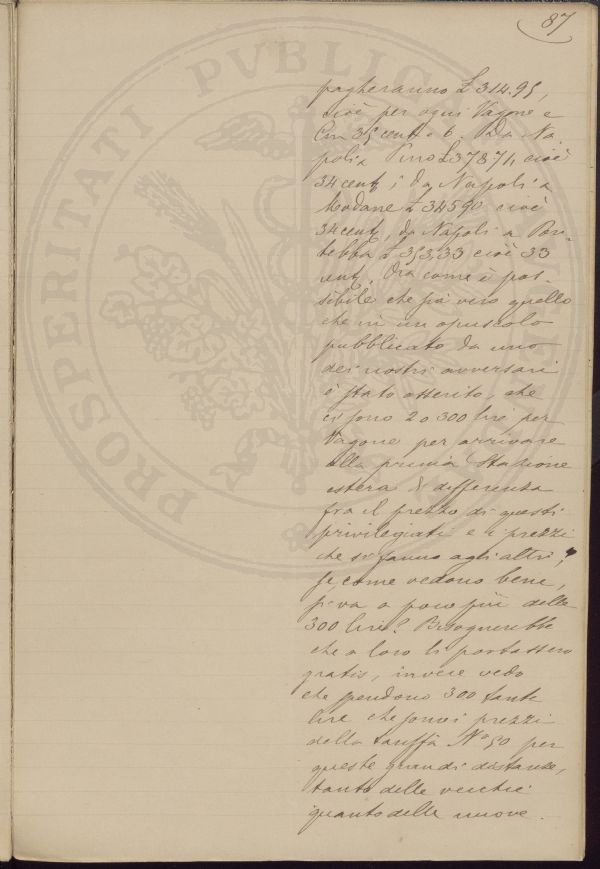 87
pagheranno £ 314.95,
cioè per ogni Vagone e
Cm 35 cent e 6. Da Na
poli a Pino £ 378 71 cioè
34 cent; da Napoli a
Modane £ 345 90 cioè
34 cent, da Napoli a Pon-
tebba £ 353,33 cioè 33
cent. Ora come è pos-
sibile che sia vero quello
che in un opuscolo
pubblicato da uno
dei nostri avversari
è stato asserito, che
ci sono 2 o 300 lire per
Vagone per arrivare
alla prima Stazione
estera di differenza
fra il prezzo di questi
privilegiati e i prezzi
che si fanno agli altri;
se, come vedono bene,
si va a poco più delle
300 lire? Bisognerebbe
che a loro li portassero
gratis, invece vedo
che spendono 300 tante
lire che sono i prezzi
della tariffa No 50 per
queste grandi distanze,
tanto delle vecchie
quanto delle nuove.
PROSPERITATI PVBLICAE